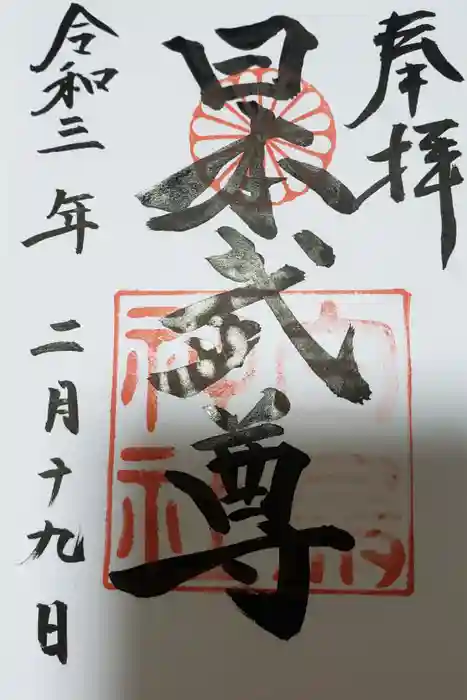 奉拝
日本武尊
令和三年二月十九日